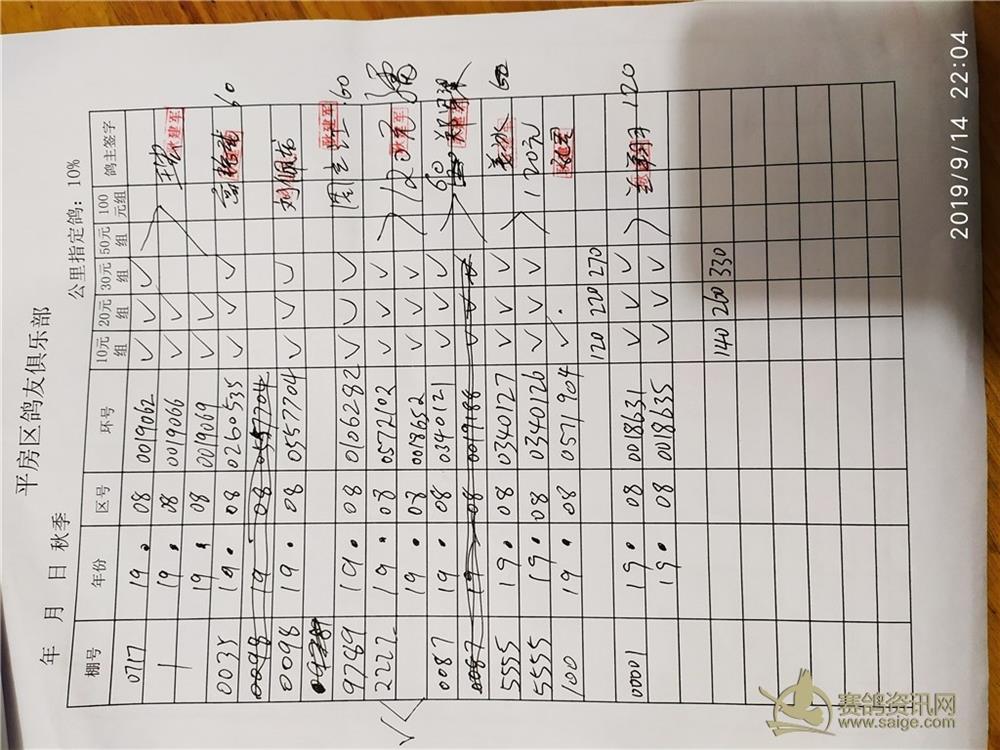 平房区鸽友俱乐部
年 月 日 秋季 公里指定鸽：10%
棚号 年份 区号 环号 10元组 20元组 30元组 50元组 100元组 鸽主签字
0717 19. 08 0019062 ✓ ✓ ✓
19. 08 0019066 ✓ ✓ ✓
19. 08 0019069 ✓ ✓
0035 19. 08 0260535 ✓ ✓ ✓ 60
0098 19 08 0557704
0098 19. 08 0557704 ✓ ✓ ✓
9789 19. 08 0106282 ✓ ✓ ✓ 60
2222 19. 08 0572102 ✓ ✓ ✓ 120元
19. 08 0018652 ✓ ✓ ✓
0087 19. 08 0340121 ✓ ✓ ✓ 60
0087 19 08 0019188 ✓ ✓ ✓
5555 19. 08 0340127 ✓ ✓ ✓ 60
5555 19. 08 0340126 ✓ ✓ ✓ 120元
100 19. 08 0571904 ✓ ✓
120 220 270
00001 19. 08 0018631 ✓ ✓ ✓ 120
19. 08 0018635 ✓ ✓ ✓
140 260 330
2019/9/14 22:04
赛鸽资讯网
www.saige.com